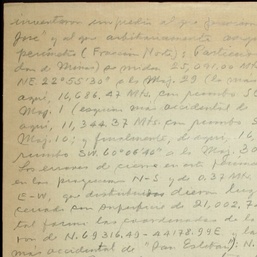 inventaron impedía al que
José" y el que arbitrariamente
perímetro (Fracción Norte); Particion
de Minas) se midio 25,091.00 Mts
NE. 22°55'30" a la Moj. 29 (la más
aquí, 16,686.47 Mts. con rumbo S
Moj. 1 (esquina más occidental d
aquí, 11,344.37 Mts. con rumbo S
Moj. 16; y finalmente, de aquí, 16
rumbo S.W. 60°06'40" a la Moj. 30
Los errores de cierre en este perím
en las proyeccion N-S y de 0.37 Mts.
E-W, que distribuidos dieron lug
cerrado con superficie de 21,002.7
tal forma las coordenadas de la
ron de N. 69316.49 - 44178.99 E y la
más occidental de "San Esteban": N.